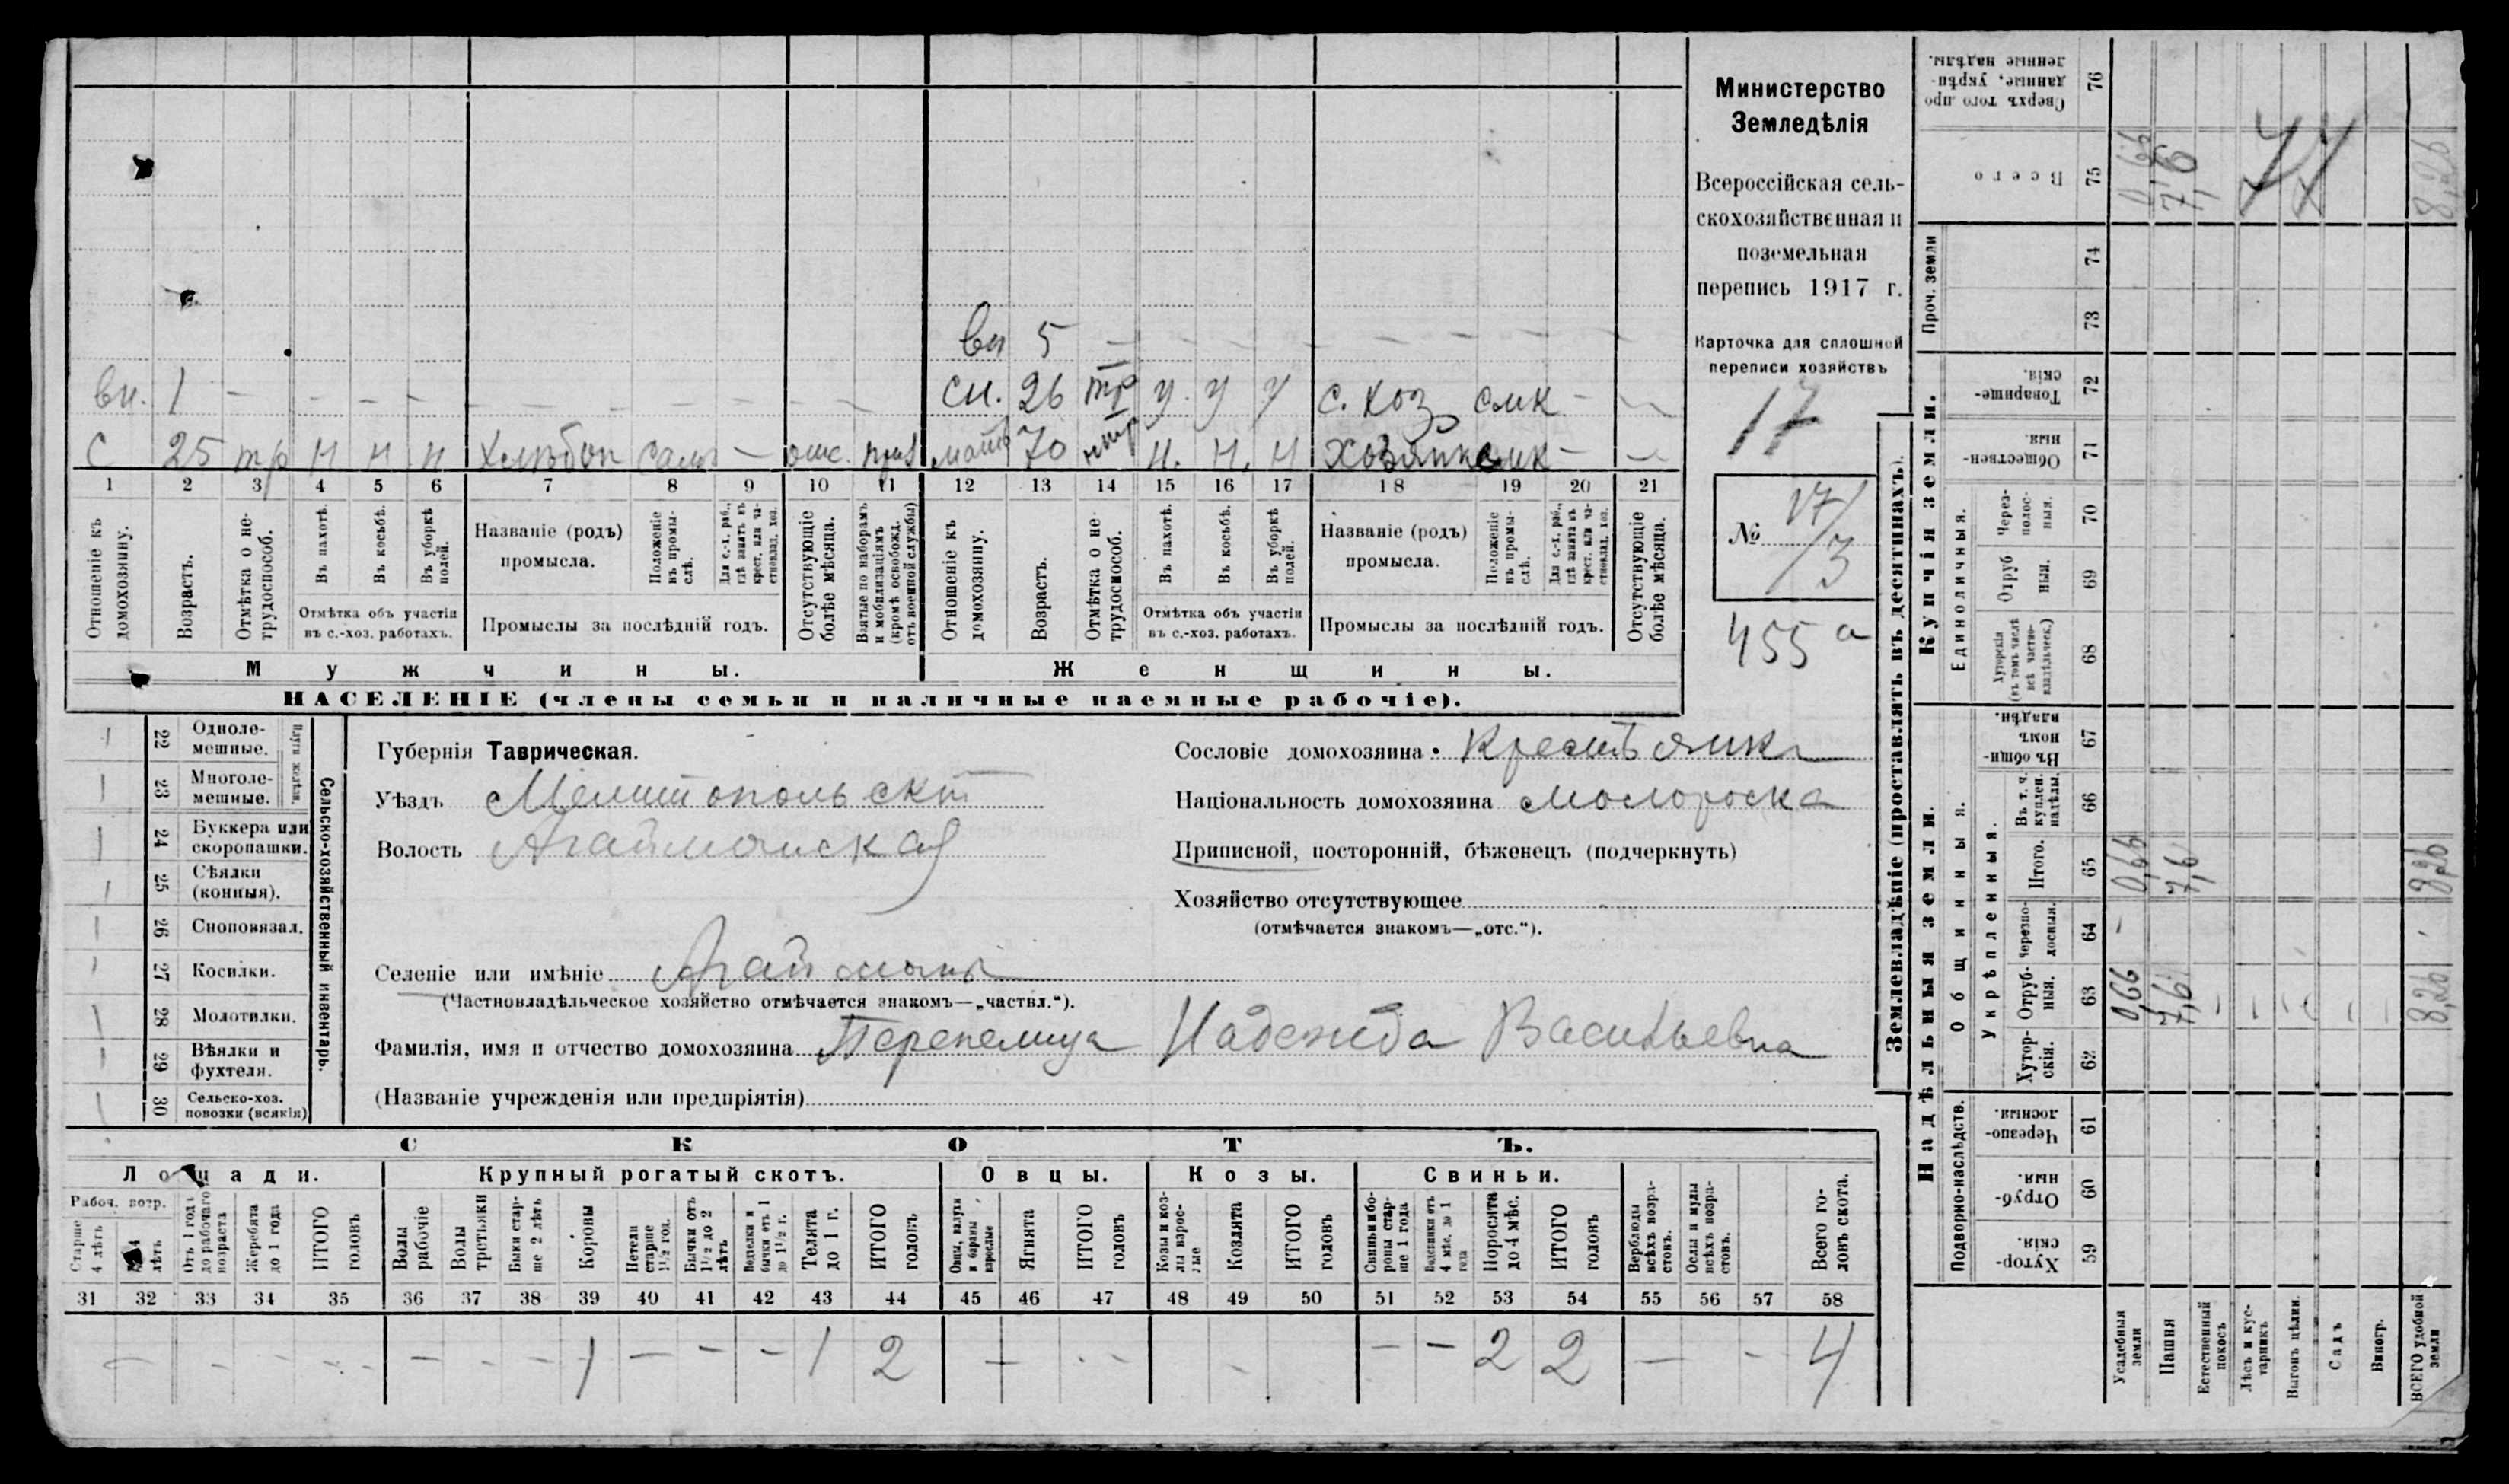 вн 5 – – – – – – – –
вн. 1 – – – – – – – – –
сн. 26 тр у у у с. хоз смк – –
с 25 тр н н н Хлѣбоп сам – отс. приз
мать 70 нтр н. н. н Хозяйк смк – –
1 2 3 4 5 6 7 8 9 10 11 12 13 14 15 16 17 18 19 20 21
Отношеніе къ домохозяину.
Возрастъ.
Отмѣтка о не-трудоспособ.
Въ пахотѣ.
Въ косьбѣ.
Въ уборкѣ полей.
Отмѣтка объ участіи
въ с.-хоз. работахъ.
Названіе (родъ)
промысла.
Положеніе въ промы-слѣ.
Для с.-х. раб., гдѣ занятъ въ крест. или ча-стновлад. хоз.
Промыслы за послѣдній годъ.
Отсутствующіе болѣе мѣсяца.
Взятые по наборамъ и мобилизаціямъ (кромѣ освобожд. отъ военной службы)
Отношеніе къ домохозяину.
Возрастъ.
Отмѣтка о не-трудоспособ.
Въ пахотѣ.
Въ косьбѣ.
Въ уборкѣ полей.
Отмѣтка объ участіи
въ с.-хоз. работахъ.
Названіе (родъ)
промысла.
Положеніе въ промы-слѣ.
Для с.-х. раб., гдѣ занятъ въ крест. или ча-стновлад. хоз.
Промыслы за послѣдній годъ.
Отсутствующіе болѣе мѣсяца.
Мужчины. Женщины.
НАСЕЛЕНІЕ (члены семьи и наличные наемные рабочіе).
Министерство
Земледѣлія
Всероссійская сель-
скохозяйственная и
поземельная
перепись 1917 г.
Карточка для сплошной
переписи хозяйствъ
17
№ 17/3
455а
Сельско-хозяйственный инвентарь.
Плуги желѣзн.
22 Одноле-мешные.
23 Многоле-мешные.
24 Буккера или скоропашки.
25 Сѣялки (конныя).
26 Сноповязал.
27 Косилки.
28 Молотилки.
29 Вѣялки и фухтеля.
30 Сельско-хоз. повозки (всякія)
Губернія Таврическая.
Уѣздъ Мелитопольскій
Волость Агайманская
Селеніе или имѣніе Агайманы
(Частновладѣльческое хозяйство отмѣчается знакомъ—„частвл.“).
Фамилія, имя и отчество домохозяина Перепелица Надежда Васильевна
(Названіе учрежденія или предпріятія)
Сословіе домохозяина Крестьянка
Національность домохозяина малороска
Приписной, посторонній, бѣженецъ (подчеркнуть)
Хозяйство отсутствующее
(отмѣчается знакомъ—„отс.“).
СКОТЪ.
Лошади. Крупный рогатый скотъ. Овцы. Козы. Свиньи.
Рабоч. возр.
Старше 4 лѣтъ
4 лѣтъ
Отъ 1 года до рабочаго возраста
Жеребята до 1 года
ИТОГО головъ
Волы рабочіе
Волы третьяки
Быки стар-ше 2 лѣтъ
Коровы
Нетели старше 1½ год.
Бычки отъ 1½ до 2 лѣтъ
Подтелки и бычки отъ 1 до 1½ г.
Телята до 1 г.
ИТОГО головъ
Овцы, валухи и бараны взрослые
Ягнята
ИТОГО головъ
Козы и коз-лы взрос-лые
Козлята
ИТОГО головъ
Свиньи и бо-ровы стар-ше 1 года
Подсвинки отъ 4 мѣс. до 1 года
Поросята до 4 мѣс.
ИТОГО головъ
Верблюды всѣхъ возра-стовъ.
Ослы и мулы всѣхъ возра-стовъ.
Всего го-ловъ скота.
31 32 33 34 35 36 37 38 39 40 41 42 43 44 45 46 47 48 49 50 51 52 53 54 55 56 57 58
– – – – – – – 1 – – – 1 2 – – – – – – 2 2 – – 4
Землевладѣніе (проставлять въ десятинахъ).
Купчія земли.
Надѣльныя земли.
Проч. земли
Единоличныя.
Общинныя.
Укрѣпленныя.
Подворно-наслѣдств.
76 Сверхъ того про-данные, укрѣп-ленные надѣлы.
75 Всего 0,66 7,6 8,26
74
73
72 Товарище-скія.
71 Обществен-ныя.
70 Через-полос-ныя.
69 Отруб-ныя.
68 Хуторскія (въ томъ числѣ всѣ частно-владѣльческ.)
67 Въ общи-номъ владѣн.
66 Въ т. ч. куплен. надѣлы.
65 Итого. 0,66 7,6 8,26
64 Черезпо-лосныя. –
63 Отруб-ныя. 0,66 7,6 8,26
62 Хутор-скія.
61 Черезпо-лосныя.
60 Отруб-ныя.
59 Хутор-скія.
Усадебныя земли
Пашня
Естественный покосъ
Лѣсъ и кус-тарникъ
Выгонъ цѣлин.
Садъ
Виногр.
ВСЕГО удобной земли